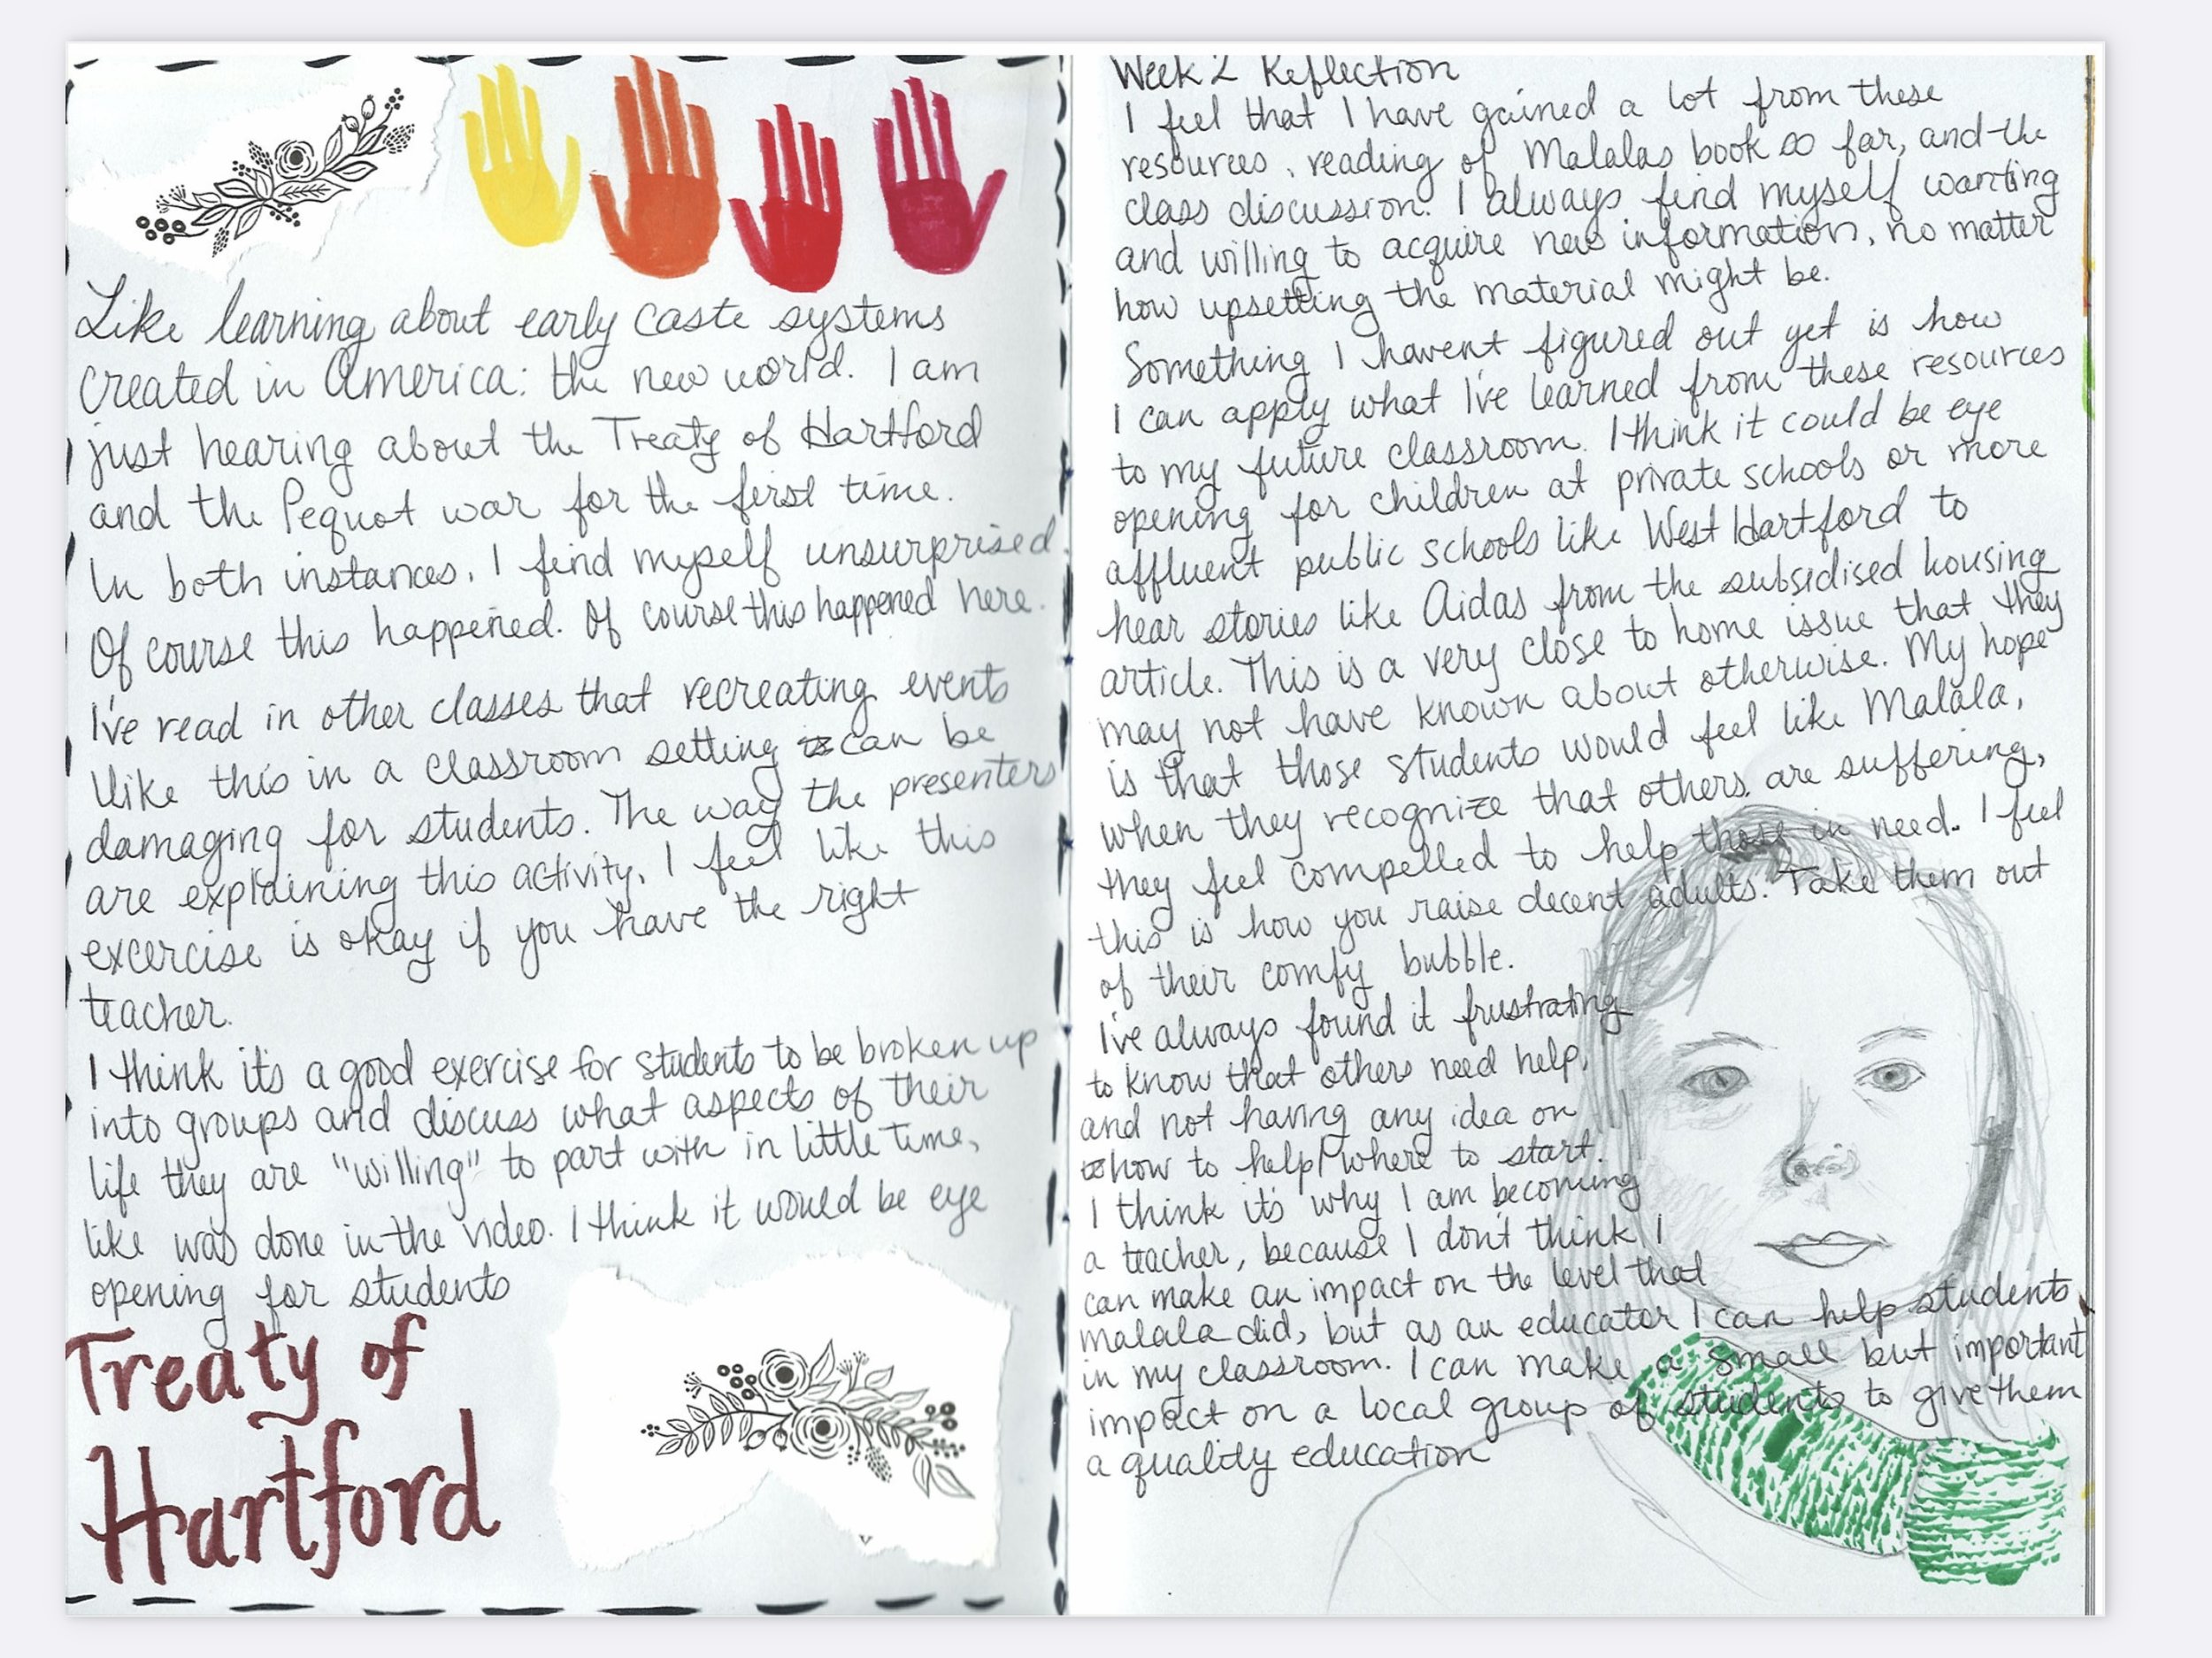 Like learning about early caste systems
created in America: the new world. I am
just hearing about the Treaty of Hartford
and the Pequot war for the first time.
In both instances, I find myself unsurprised.
Of course this happened. Of course this happened here.
I've read in other classes that recreating events
like this in a classroom setting is can be
damaging for students. The way the presenters
are explaining this activity, I feel like this
excercise is okay if you have the right
teacher.
I think it's a good exercise for students to be broken up
into groups and discuss what aspects of their
life they are "willing" to part with in little time,
like was done in the video. I think it would be eye
opening for students
Treaty of
Hartford
Week 2 Reflection
I feel that I have gained a lot from these
resources, reading of Malalas book so far, and the
class discussion. I always find myself wanting
and willing to acquire new information, no matter
how upsetting the material might be.
Something I havent figured out yet is how
I can apply what I've learned from these resources
to my future classroom. I think it could be eye
opening for children at private schools or more
affluent public schools like West Hartford to
hear stories like Aidas from the subsidised housing
article. This is a very close to home issue that they
may not have known about otherwise. My hope
is that those students would feel like Malala,
when they recognize that others are suffering,
they feel compelled to help those in need. I feel
this is how you raise decent adults. Take them out
of their comfy bubble.
I've always found it frustrating
to know that others need help,
and not having any idea on
to how to help/where to start.
I think it's why I am becoming
a teacher, because I don't think I
can make an impact on the level that
malala did, but as an educator I can help students
in my classroom. I can make a small but important
impact on a local group of students to give them
a quality education